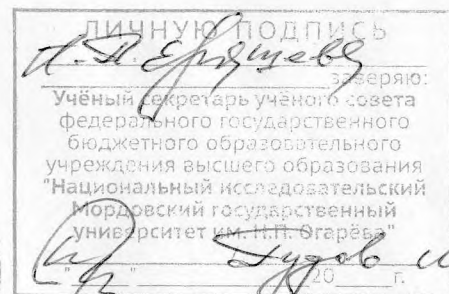 ЛИЧНУЮ ПОДПИСЬ
заверяю:
Учёный секретарь учёного совета
федерального государственного
бюджетного образовательного
учреждения высшего образования
"Национальный исследовательский
Мордовский государственный
университет им. Н.П. Огарёва"
" " 20 г.